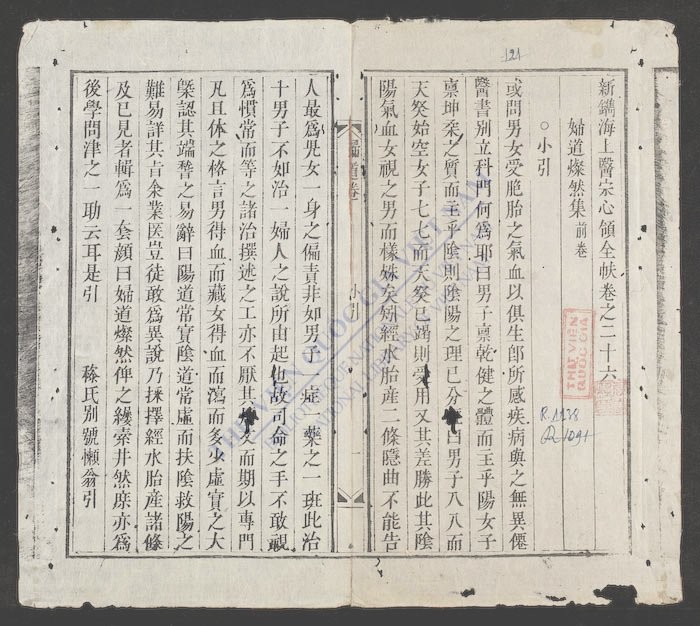 新鐫海上醫宗心領全帙卷之二十六
婦道燦然集前卷
○小引
或問男女受胞胎之氣血以俱生郎所感疾病與之無異僊
醫書別立科門何為耶曰男子禀乾健之體而主乎陽女子
禀坤柔之質而主乎陰則陰陽之理已分 曰男子八八而
天癸始空女子七七而天癸已竭則受用又其差勝此其陰
陽氣血女視之男而樣姝矣矧經水胎產二條隱曲不能告
道卷
小引
一
人最為児女一身之偏責非如男子一症一藥之一班此治
十男子不如治一婦人之說所由起也故司命之手不敢視
為慣常而等之諸治撰述之工亦不厭其 文而期以專門
凡且体之格言男得血而藏女得血而瀉而多少虛實之大
槩認其端瞀之易辭曰陽道常實陰道常虛而扶陰救陽之
難易詳其言余業医豈徒敢為異說乃採擇經水胎產諸條
及已見者輯為一套顔曰婦道燦然俾之縷索井然庶亦為
後學問津之一助云耳是引
黎氏別號懶翁引
121
THƯ VIỆN
QUỐC GIA
R.1938
R.1091
THƯ VIỆN QUỐC GIA VIỆT NAM
BIBLIOTHEQUE NATIONALE DU VIETNAM
NATIONAL LIBRARY OF VIETNAM